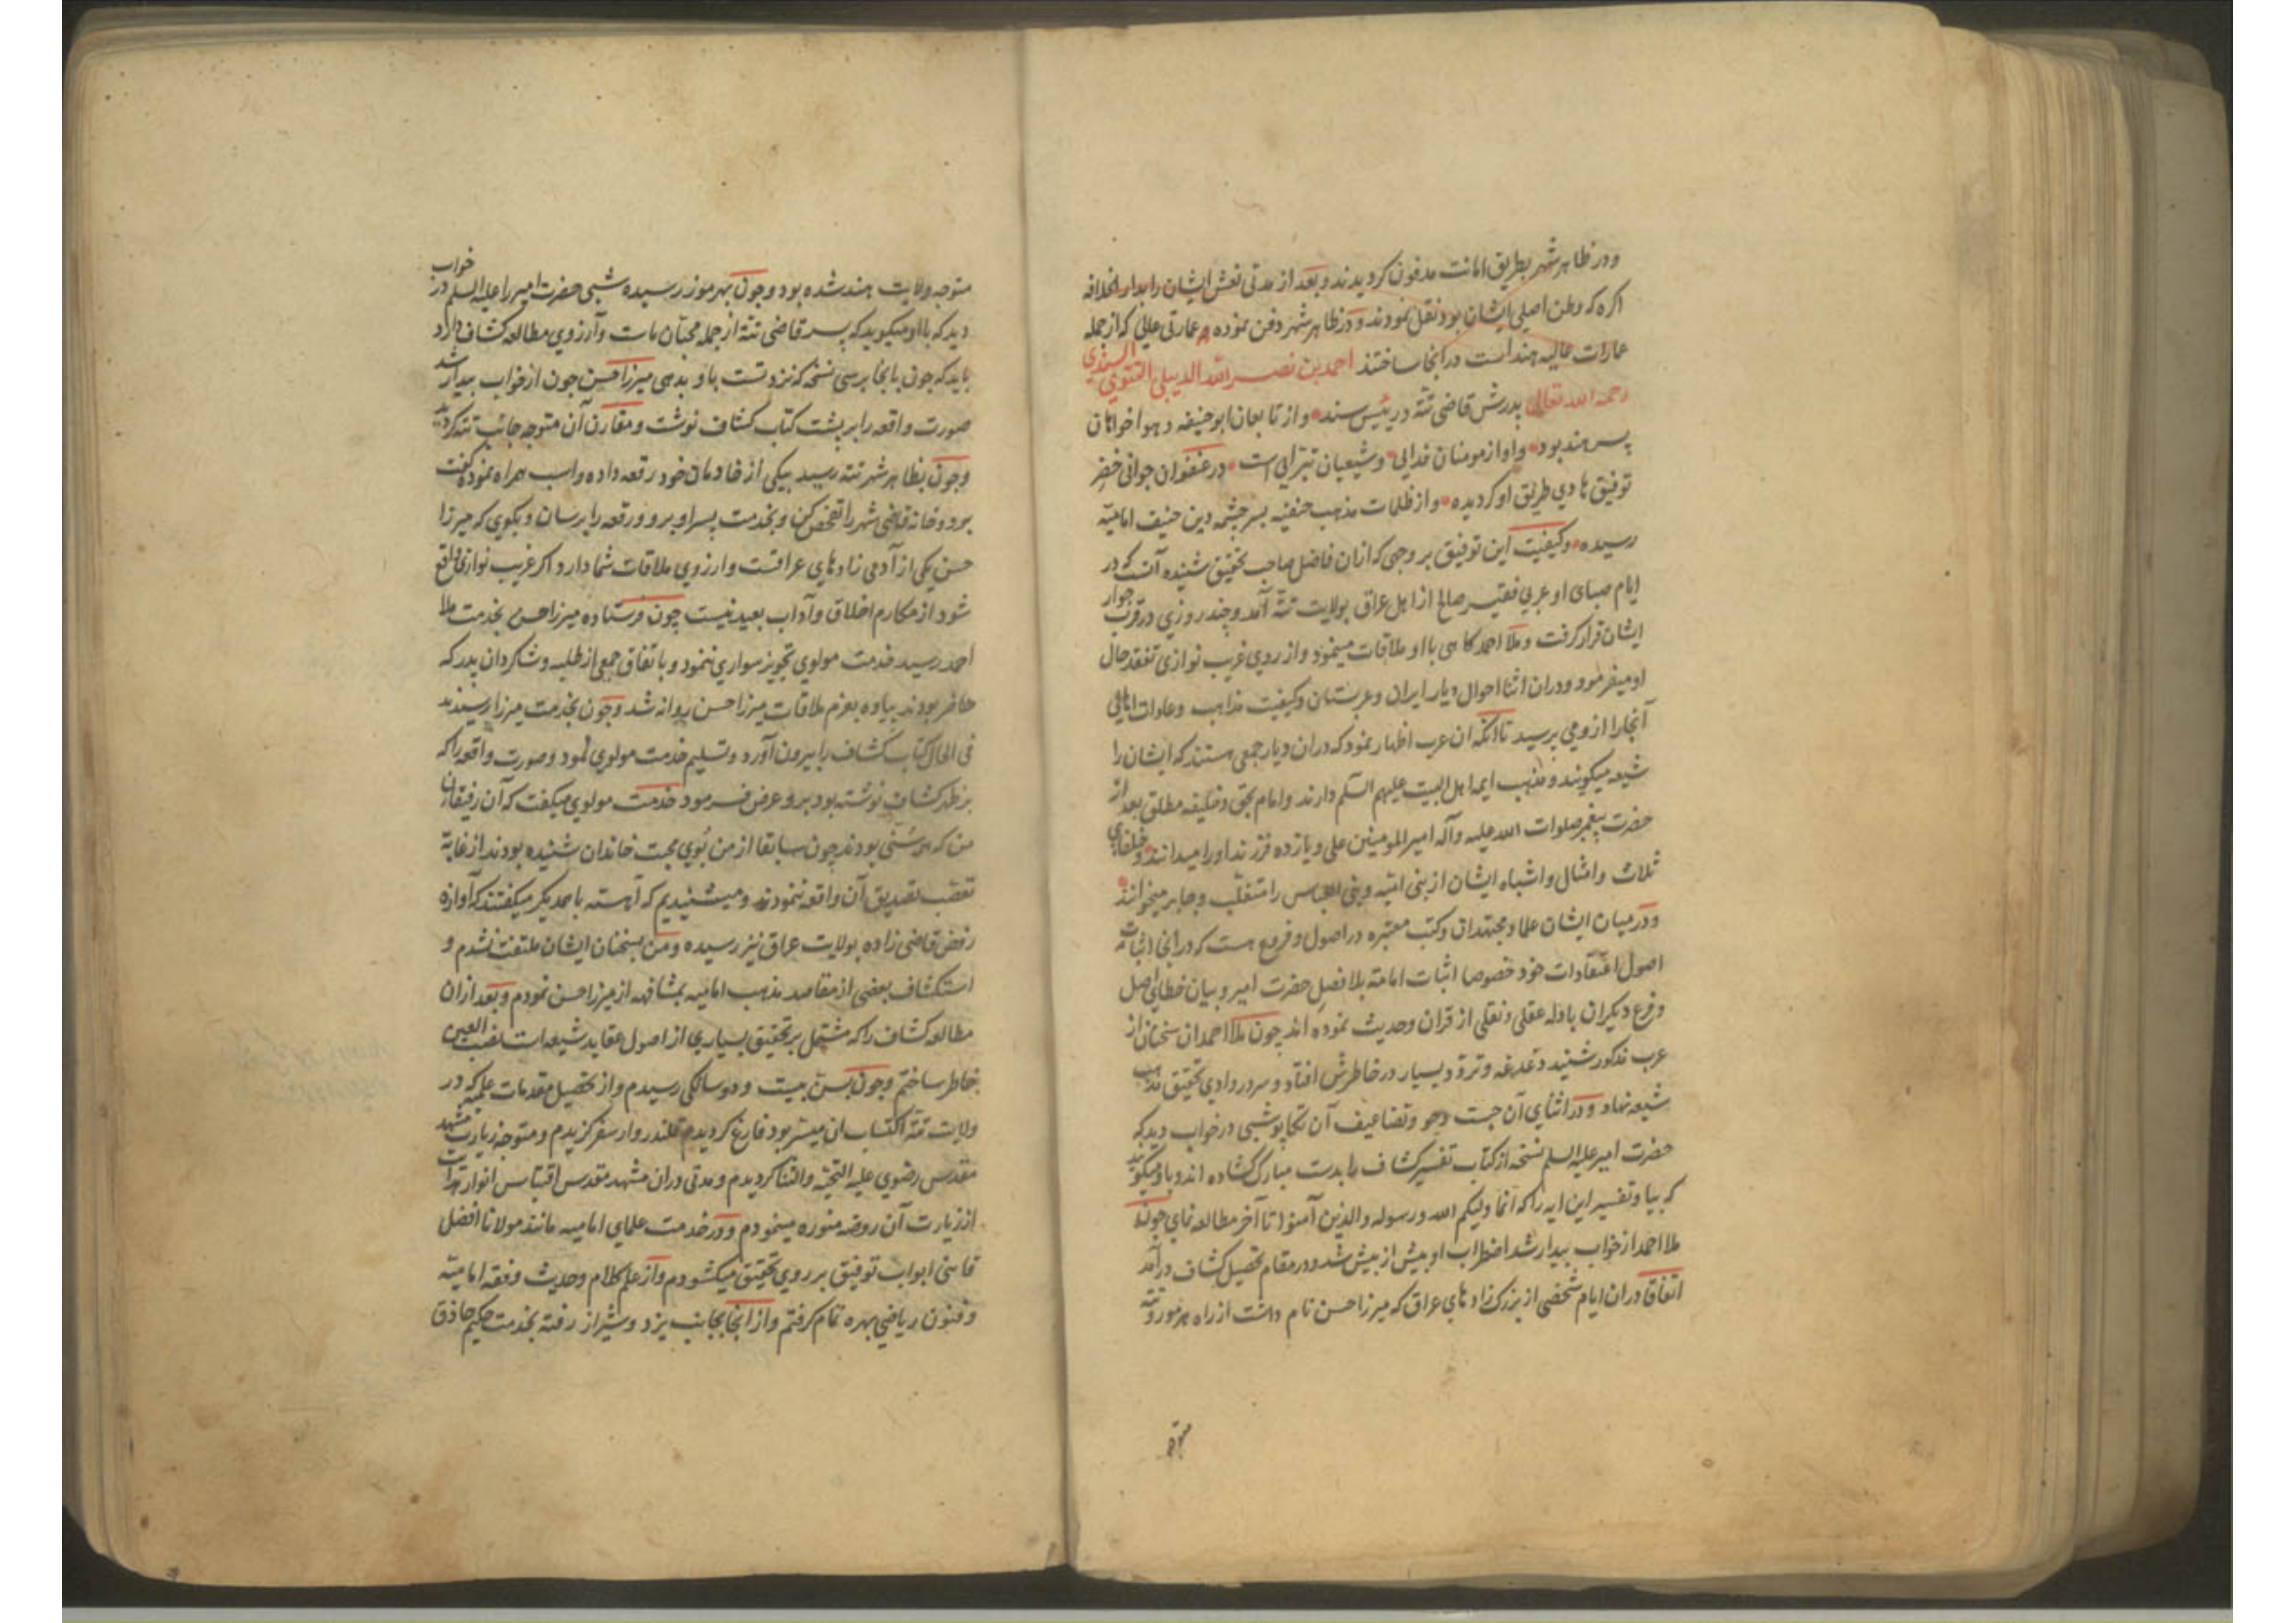 ودر ظاهر شهر بطریق امانت مدفون کردیدند و بعد از مدتی نعش ایشان را بدار الخلافه
اکره که وطن اصلی ایشان بود نقل نمودند و در ظاهر شهر دفن نموده عمارتی عالی که از جمله
عمارات عالیه هند است در انجا ساختند احمد بن نصر الله الدیبلی التتوی السندی
رحمه الله تعالی پدرش قاضی تته و رئیس سند و از تابعان ابو حنیفه و هواخواهان
پسر هند بود و او از مومنان فدایی و شیعیان تبرایی است در عنفوان جوانی خضر
توفیق هادی طریق او کردیده و از ظلمات مذهب حنفیه بسر چشمه دین حنیف امامیه
رسیده و کیفیت این توفیق بر وجهی که ازان فاضل صاحب تحقیق شنیده آنست که در
ایام صبای او عربی فقیر صالح از اهل عراق بولایت تته آمد و چند روزی در قرب جوار
ایشان قرار کرفت و ملا احمد کاهی با او ملاقات مینمود و از روی غریب نوازی تفقد حال
او میفرمود و دران اثنا احوال دیار ایران و عربستان و کیفیت مذاهب و عادات اهالی
آنجا را از وی می پرسید تا آنکه ان عرب اظهار نمود که دران دیار جمعی هستند که ایشان را
شیعه میکویند و مذهب ایمه اهل البیت علیهم السلم دارند و امام بحق و خلیفه مطلق بعد از
حضرت پیغمبر صلوات الله علیه وآله امیر المومنین علی و یازده فرزند او را میدانند و خلفای
ثلاث و امثال و اشباه ایشان از بنی امیه و بنی العباس را متغلب و جابر میخوانند
و در میان ایشان علما و مجتهدان و کتب معتبره در اصول و فروع هست که در انجا اثبات
اصول اعتقادات خود خصوصا اثبات امامة بلا فصل حضرت امیر و بیان خطای اصل
و فرع دیکران بادله عقلی و نقلی از قران و حدیث نموده اند چون ملا احمد ان سخنان از
عرب مذکور شنید دغدغه و تردد بسیار در خاطرش افتاد و سر در وادی تحقیق مذهب
شیعه نهاد و در اثنای آن جست وجو و تضاعیف آن تکاپو شبی در خواب دید که
حضرت امیر علیه السلم نسخه از کتاب تفسیر کشاف را بدست مبارک کشاده اند و باو میکویند
که بیا و تفسیر این ایه را که انما ولیکم الله ورسوله والذین آمنوا تا آخر مطالعه نمای چون
ملا احمد از خواب بیدار شد اضطراب او بیش از پیش شد و در مقام تحصیل کشاف درآمد
اتفاقا دران ایام شخصی از بزرک زادهای عراق که میرزا حسن نام داشت از راه هرموز و تته
متوجه
متوجه ولایت هند شده بود و چون بهرموز رسیده شبی حضرت امیر را علیه السلم در خواب
دید که با او میکوید که پسر قاضی تته از جمله محبان ماست و آرزوی مطالعه کشاف دارد
باید که چون بانجا برسی نسخه که نزد تست باو بدهی میرزا حسن چون از خواب بیدار شد
صورت واقعه را بر پشت کتاب کشاف نوشت و مقارن آن متوجه جانب تته کردید
و چون بظاهر شهر تته رسید بیکی از خادمان خود رقعه داده و اسب همراه نمود کفت
برو و خانه قاضی شهر را تفحص کن و بخدمت پسر او برو و رقعه را برسان و بکوی که میرزا
حسن یکی از آدمی زادهای عراقست و ارزوی ملاقات شما دارد اکر غریب نوازی واقع
شود از مکارم اخلاق و آداب بعید نیست چون فرستاده میرزا حسن بخدمت ملا
احمد رسید خدمت مولوی تجویز سواری ننمود و باتفاق جمعی از طلبه و شاکردان پدر که
حاضر بودند پیاده بعزم ملاقات میرزا حسن روانه شد و چون بخدمت میرزا رسیدند
فی الحال کتاب کشاف را بیرون آورد و تسلیم خدمت مولوی نمود و صورت واقعه را که
بر ظهر کشاف نوشته بود برو عرض فرمود خدمت مولوی میکفت که آن رفیقان
من که همه سنی بودند چون سابقا از من بوی محبت خاندان شنیده بودند از غایة
تعصب تصدیق آن واقعه ننمودند و میشنیدیم که آهسته با همدیکر میکفتند که آوازه
رفض قاضی زاده بولایت عراق نیز رسیده و من بسخنان ایشان ملتفت نشدم و
استکشاف بعضی از مقاصد مذهب امامیه بمشافهه از میرزا حسن نمودم و بعد ازان
مطالعه کشاف را که مشتمل بر تحقیق بسیاری از اصول عقاید شیعه است نصب العین
خاطر ساختم و چون بسن بیست و دو سالکی رسیدم و از تحصیل مقدمات علمیه که در
ولایت تته اکتساب ان میسر بود فارغ کردیدم قلندروار سفر کزیدم و متوجه زیارت مشهد
مقدس رضوی علیه التحیة والثنا کردیدم و مدتی دران مشهد مقدس اقتباس انوار هدایت
از زیارت آن روضه منوره مینمودم و در خدمت علمای امامیه مانند مولانا افضل
قاینی ابواب توفیق بر روی تحقیق میکشودم و از علم کلام و حدیث و فقه امامیه
و فنون ریاضی بهره تمام کرفتم و از انجا بجانب یزد و شیراز رفته بخدمت حکیم حاذق